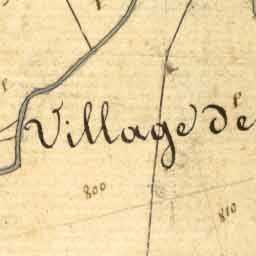 Village de
800
810